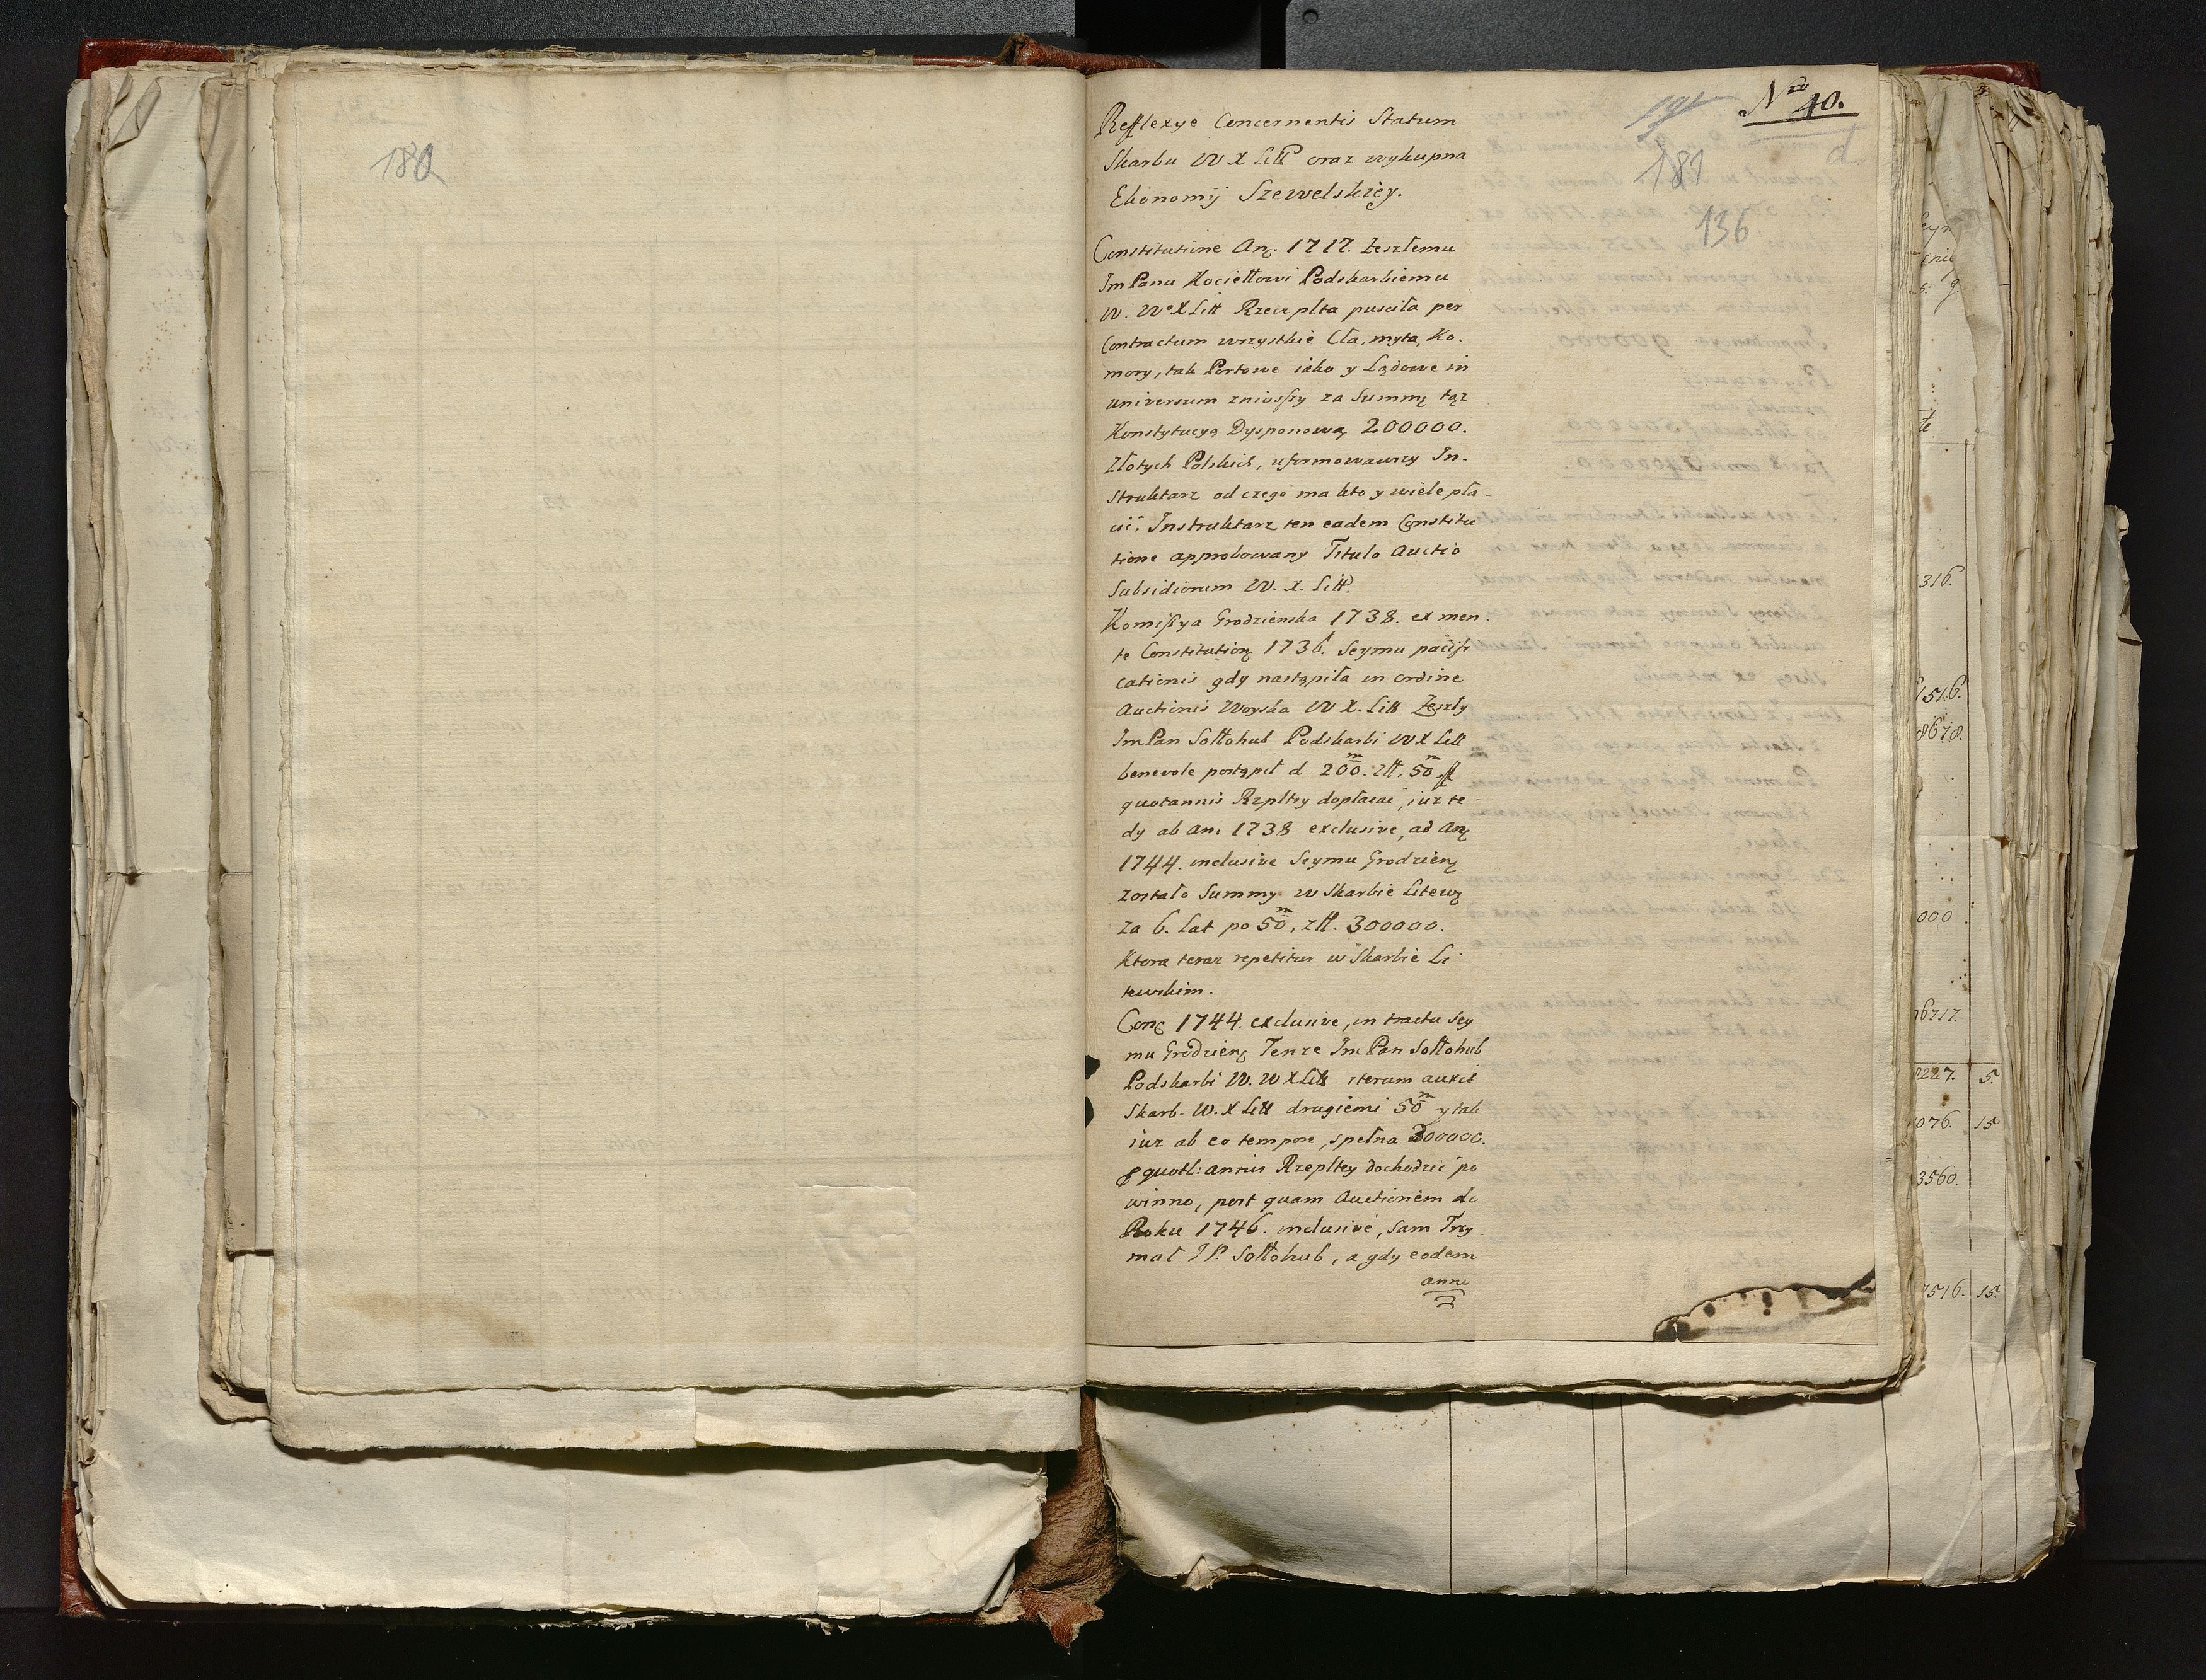 180
Nro 40.
d
181
136
Reflexye Concernentis Statum
Skarbu W X Litt oraz wykupna
Ekonomij Szewelskiey.
Constitutione An. 1717. Zeszłemu
Im Panu Kociełłowi Podskarbiemu
W. Wo X Litt Rzeczplta pusciła per
Contractum wszystkie Cła, myta, Ko-
mory, tak Portowe iako y Lądowe in
universum zniosszy za Summę tąz
Konstytucyą Dysponową 200000.
Złotych Polskich, uformowawszy In-
struktarz od czego ma kto y wiele pła-
cić. Instruktarz ten eadem Constitu
tione approbowany Titulo Auctio
Subsidiorum W. X. Litt.
Komissya Grodzienska 1738. ex men-
te Constitution 1736. Seymu pacifi
cationis gdy nastąpiła in ordine
Auctionis Woyska W X. Litt Zeszły
Im Pan Sołłohub Podskarbi W X Litt
benevole postąpił d 200.m złł. 50.m
quotannis Rzpltey dopłacać, iuz te-
dy ab An: 1738 exclusive, ad An
1744. inclusive Seymu Grodzien
zostało Summy w Skarbie Litew
za 6. Lat po 50m, złł. 300000.
Ktora teraz repetitur w Skarbie Li-
tewskim.
1744. exclusive, in tractu Sey
mu Grodzien Tenze Im Pan Sołłohub
Podskarbi W. W X Litt iterum auxit
Skarb. W. X Litt drugiemi 50m y tak
iuz ab eo tempore, spełna 300000.
annis Rzepltey dochodzić po
winno, post quam Auctionem do
Roku 1746. inclusive, sam Trzy-
mał J P. Sołłohub, a gdy eodem
anno
316.
1516.
8678.
000
6717.
2227. 5.
1076. 15
3560.
7516. 15.